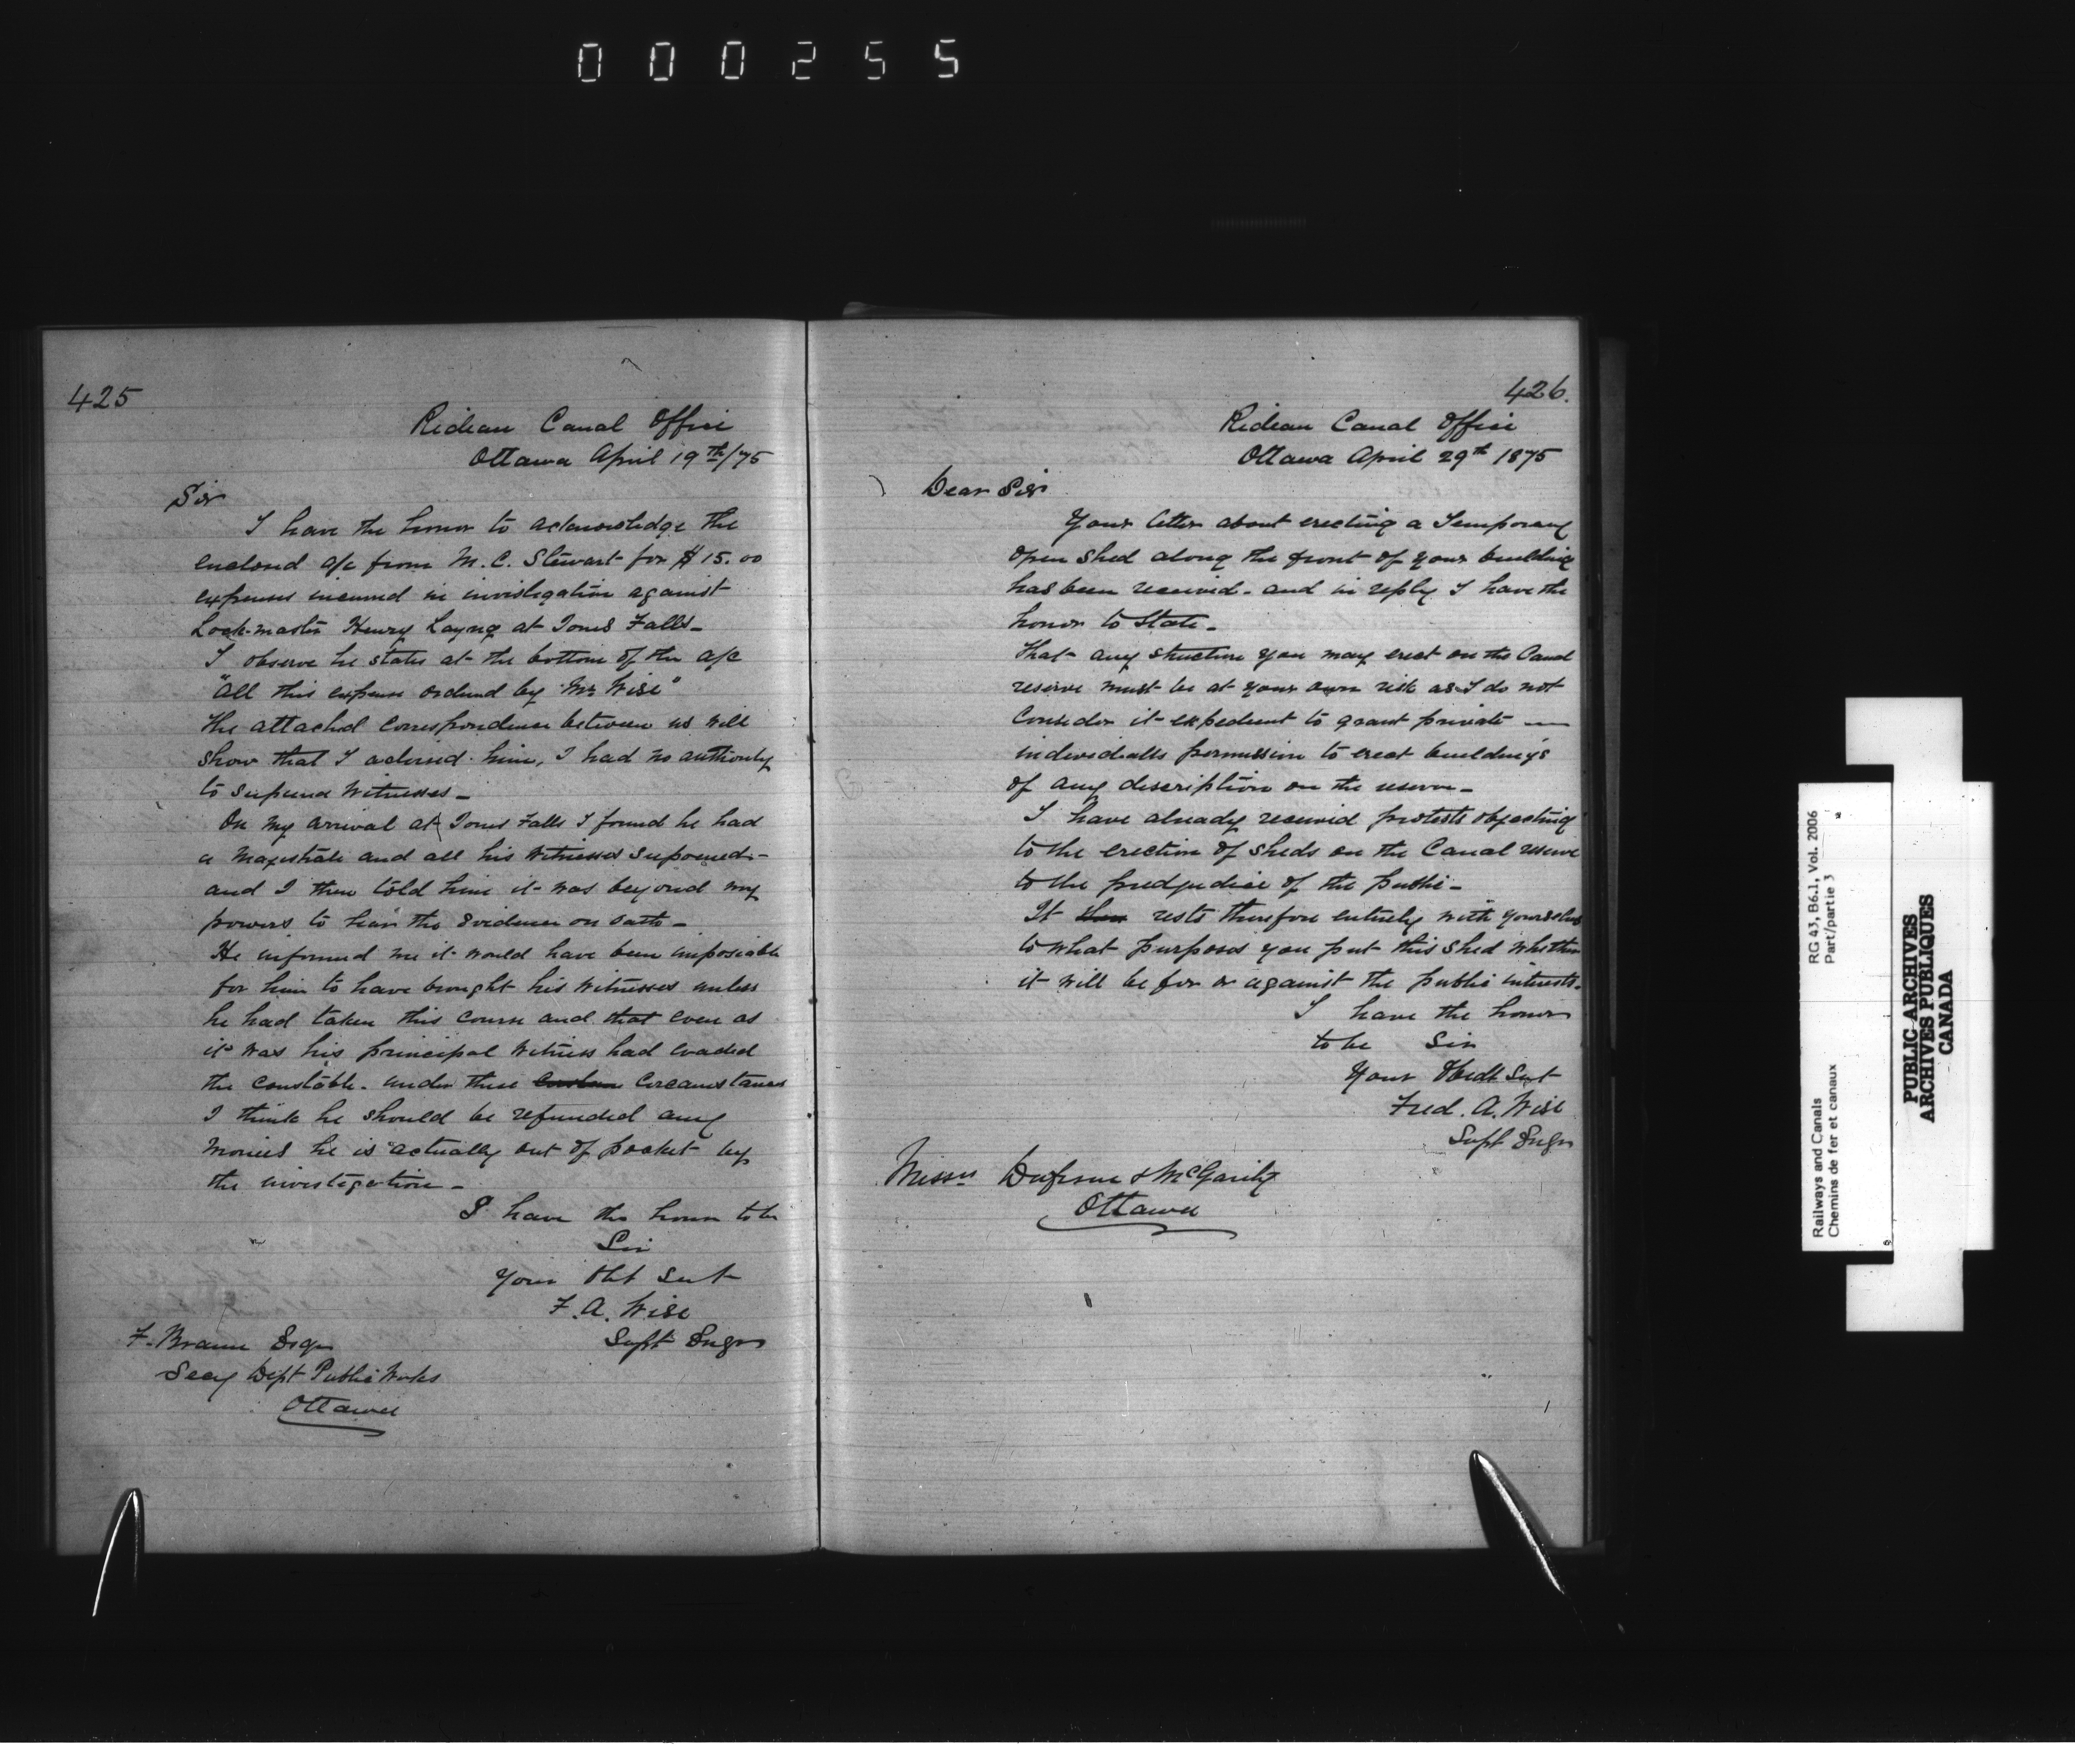 000255
425
Rideau Canal Office
Ottawa April 19th/75
Sir
I have the honor to acknowledge the
enclosed a/c from M. C. Stewart for $15.00
expenses incurred in investigation against
Lock-master Henry Layng at Jones Falls_
I observe he states at the bottom of the a/c
"All this expense ordered by Mr Wise"
The attached Correspondence between us will
show that I advised him, I had no authority
to supeena Witnesses_
On my arrival at Jones Falls I found he had
a Magistrate and all his Witnesses supoened-
and I then told him it was beyond my
powers to hear the Evidence on oath_
He informed me it would have been impossible
for him to have brought his Witnesses unless
he had taken this course and that even as
it was his principal Witness had evaded
the Constable. under these Circumstances
I think he should be refunded any
monies he is actually out of pocket by
the investigation_
I have the honor to be
Sir
Your Obt Servt
F. A. Wise
Supt Engr
F. Braun Esqr
Secy Dept Public Works
Ottawa
426.
Rideau Canal Office
Ottawa April 29th 1875
Dear Sir
Your letter about erecting a Temporary
open shed along the front of your building
has been received. and in reply I have the
honor to State_
That any structure you may erect on the Canal
reserve must be at your own risk as I do not
Consider it expedient to grant private
individualls permission to erect buildings
of any description on the reserve_
I have already received protests objecting
to the erection of sheds on the Canal reserve
to the predjudice of the public_
It then rests therefore entirely with yourselves
to what purposes you put this shed whether
it will be for or against the public interests.
I have the honor
to be Sir
Your Obedt Servt
Fred. A. Wise
Supt Engr
Messrs Dufresne & McGarity
Ottawa
RG 43, B6.1, Vol. 2006
Part/partie 3
Railways and Canals
Chemins de fer et canaux
PUBLIC ARCHIVES
ARCHIVES PUBLIQUES
CANADA